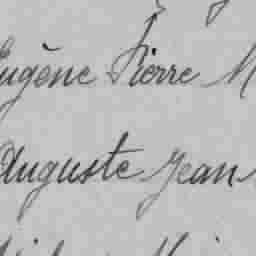 Eugène Pierre M
Auguste Jean